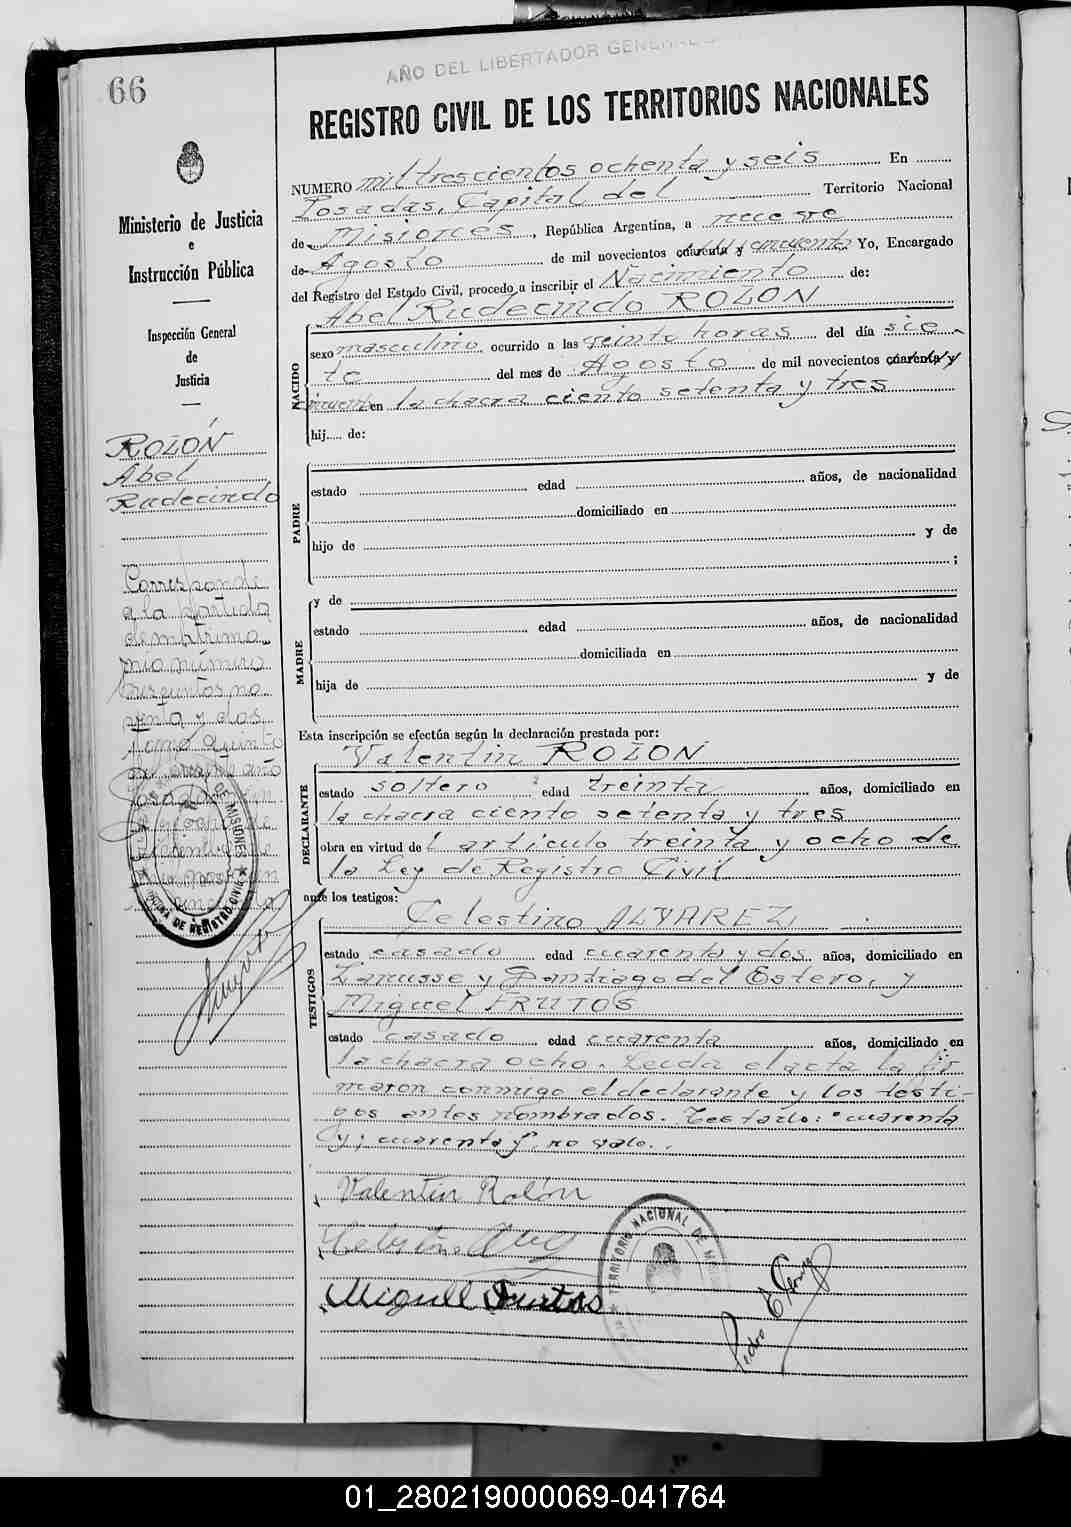 66
AÑO DEL LIBERTADOR GENERAL
REGISTRO CIVIL DE LOS TERRITORIOS NACIONALES
Ministerio de Justicia
e
Instrucción Pública
Inspección General
de
Justicia
ROLÓN
Abel
Rudecindo
Corresponde
a la partida
de matrimo
nio número
no
venta y dos
tomo quinto
año
NUMERO mil trescientos ochenta y seis En
Posadas, Capital del Territorio Nacional
de Misiones, República Argentina, a nueve
de Agosto de mil novecientos cuarenta y cincuenta Yo, Encargado
del Registro del Estado Civil, procedo a inscribir el Nacimiento de:
Abel Rudecindo ROLON
NACIDO
sexo masculino ocurrido a las veinte horas del día sie
te del mes de Agosto de mil novecientos cuarenta y
cincuenta en la chacra ciento setenta y tres
hij..... de:
PADRE
estado edad años, de nacionalidad
domiciliado en
hijo de y de
;
MADRE
y de
estado edad años, de nacionalidad
domiciliada en
hija de y de
Esta inscripción se efectúa según la declaración prestada por:
Valentin ROLÓN
DECLARANTE
estado soltero edad treinta años, domiciliado en
la chacra ciento setenta y tres
obra en virtud del articulo treinta y ocho de
la Ley de Registro Civil
ante los testigos:
Celestino ALVAREZ
TESTIGOS
estado casado edad cuarenta y dos años, domiciliado en
Lanusse y Santiago del Estero, y
Miguel FRUTOS
estado casado edad cuarenta años, domiciliado en
la chacra ocho. Leida el acta la fir
maron conmigo el declarante y los testi-
gos antes nombrados. Testado: "cuarenta
y; cuarenta y" no vale.
Valentin Rolón
Miguel Frutos
TERRITORIO NACIONAL DE
DE MISIONES
DE REGISTRO CIVIL
Pedro E
01_280219000069-041764